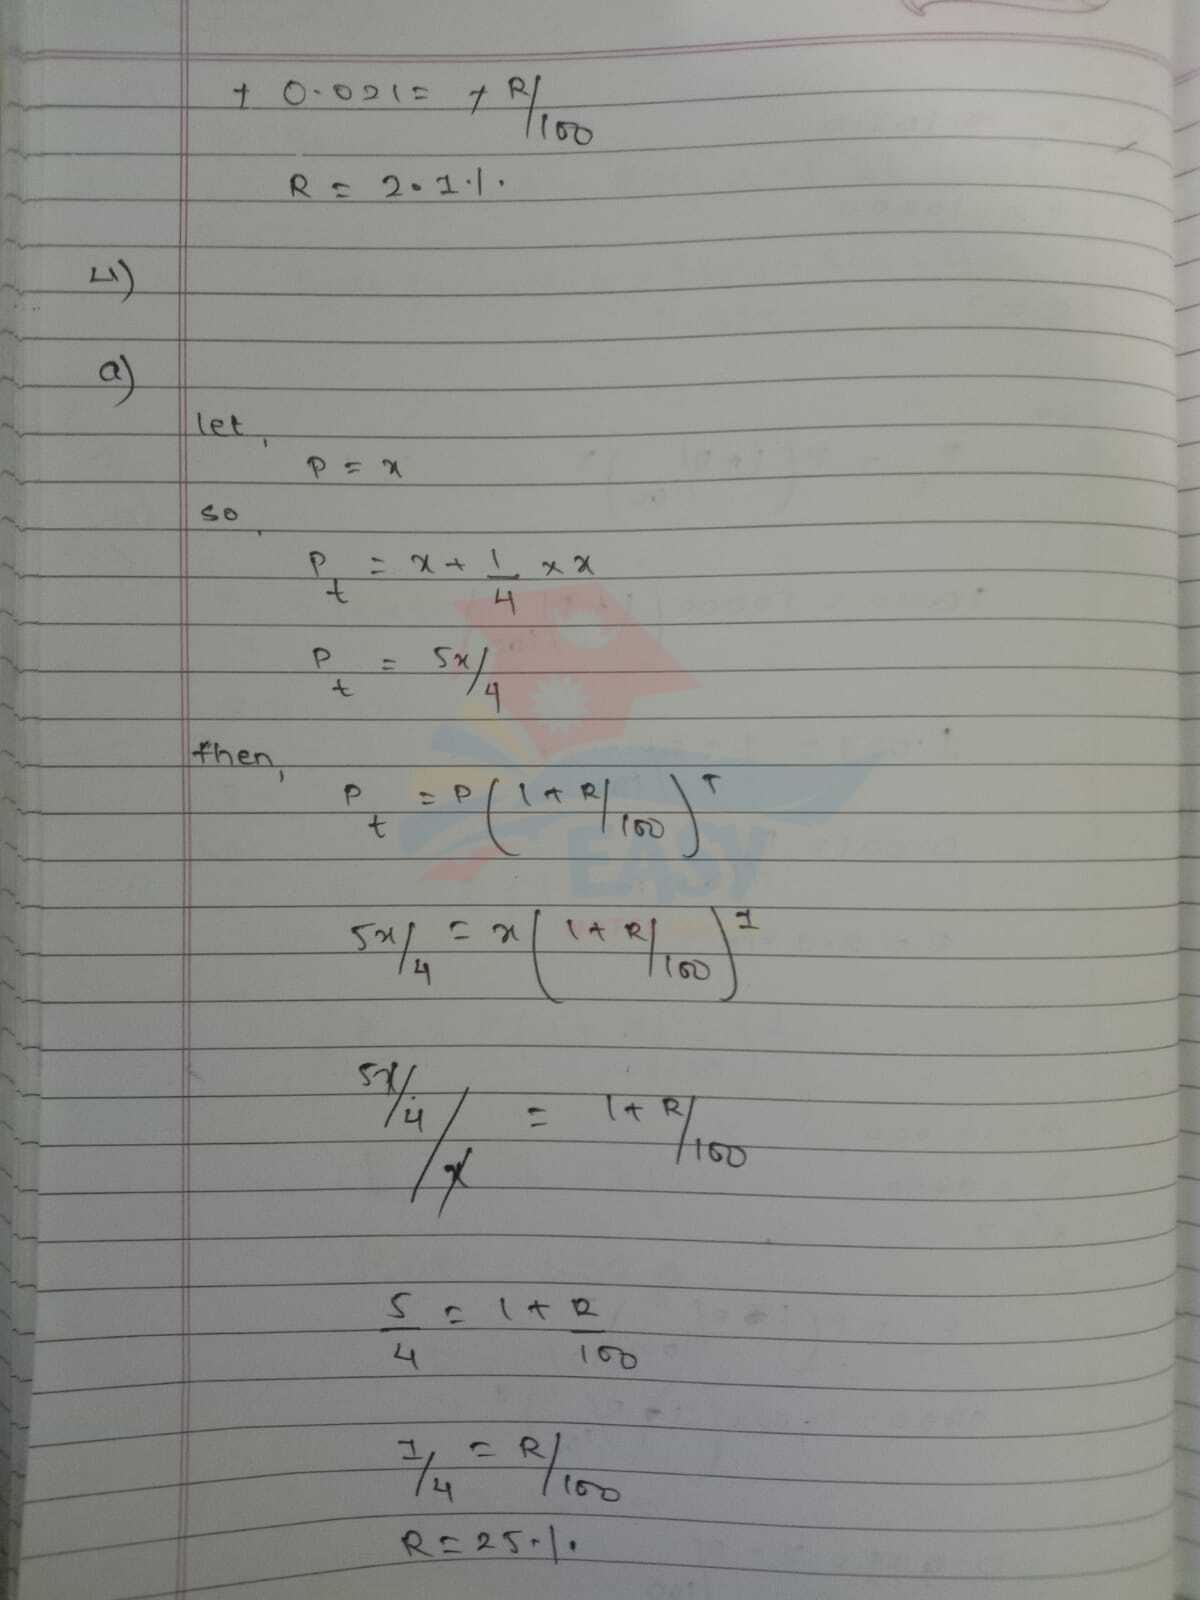 + 0.021 = + R/100
R = 2.1%.
4)
a)
let,
P = x
so,
Pt = x + 1/4 × x
Pt = 5x/4
then,
Pt = P(1 + R/100)^T
5x/4 = x(1 + R/100)^1
5x/4/x = 1 + R/100
5/4 = 1 + R/100
1/4 = R/100
R = 25%.
EASY